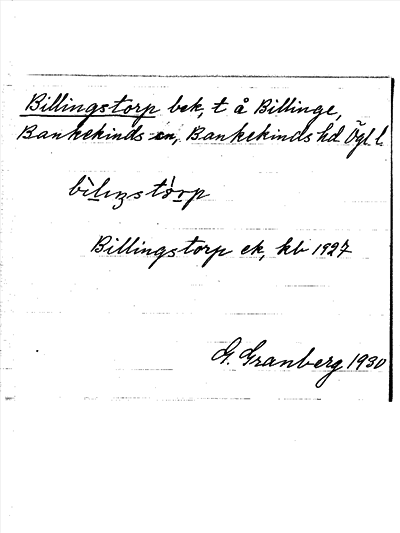 Billingstorp bek, t å Billinge,
Bankekinds sn, Bankekinds hd Ögl l.
bìlıŋstòrp
Billingstorp ek, kb 1927
G. Granberg 1930